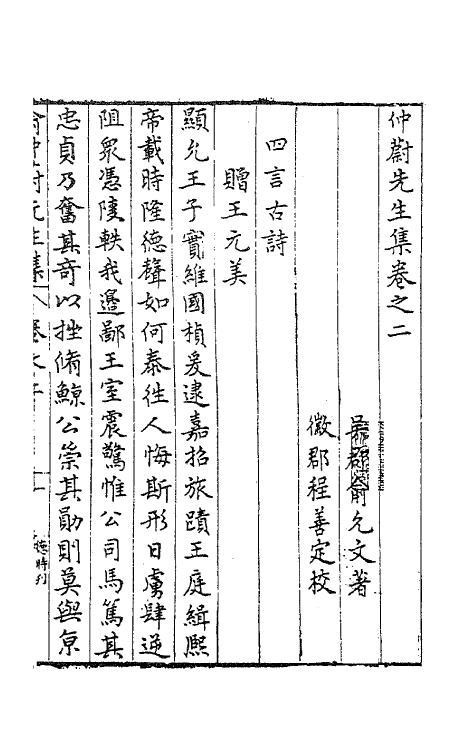 仲蔚先生集卷之二
吳郡俞允文著
徽郡程善定校
四言古詩
贈王元美
顯允王子寔維國楨爰逮嘉招旅蹟王庭緝熙
帝載時隆德聲如何泰往人悔斯形日虜肆逆
阻眾憑陵軼我邊鄙王室震驚惟公司馬篤其
忠貞乃奮其奇以挫脩鯨公崇其勛則莫與京
俞仲蔚先生集 卷之二